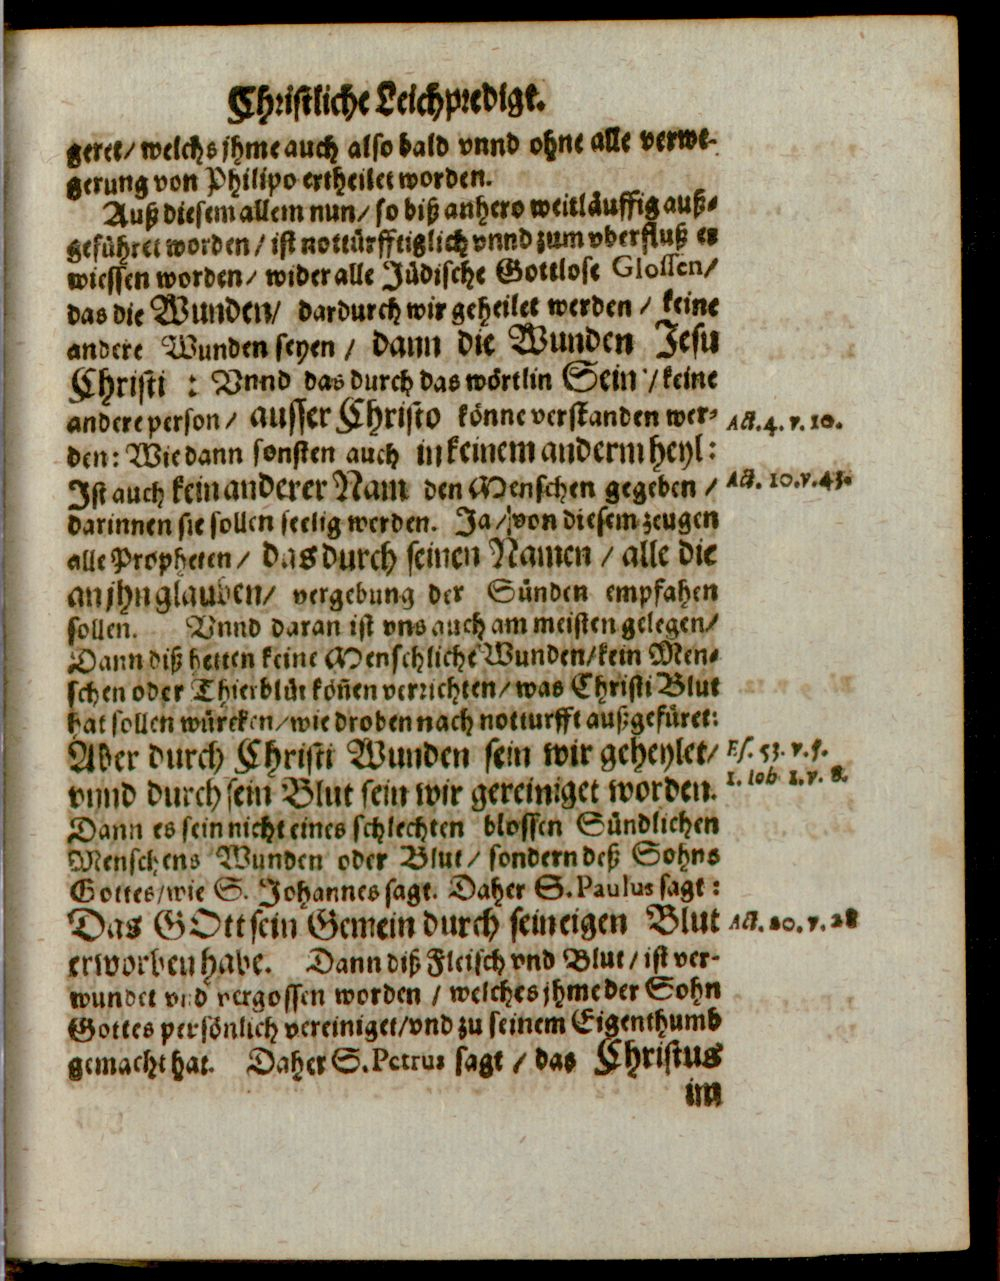 Christliche Leichpredigt.
geret/ welchs jhme auch also bald vnnd ohne alle verwe-
gerung von Philipo ertheilet worden.
Auß diesem allem nun/ so biß anhero weitläuffig auß-
geführet worden/ ist nottürfftiglich vnnd zum vberfluß er
wiessen worden/ wider alle Jüdische Gottlose Glossen/
das die Wunden/ dardurch wir geheilet werden/ keine
andere Wunden seyen/ dann die Wunden Jesu
Christi : Vnnd das durch das wörtlin Sein / keine
andere person/ ausser Christo könne verstanden wer- Act. 4. v. 10.
den: Wie dann sonsten auch in keinem anderm heyl:
Ist auch kein anderer Nam den Menschen gegeben / Act. 10. v. 43.
darinnen sie sollen seelig werden. Ja/ von diesem zeugen
alle Propheten/ das durch seinen Namen / alle die
an jhn glauben/ vergebung der Sünden empfahen
sollen. Vnnd daran ist vns auch am meisten gelegen/
Dann diß hetten keine Menschliche Wunden/ kein Men-
schen oder Thierblüt köñen verrichten/ was Christi Blut
hat sollen würcken/ wie droben nach notturfft außgefüret:
Aber durch Christi Wunden sein wir geheylet/ Es. 53. v. 5.
vnnd durch sein Blut sein wir gereiniget worden. 1. Ioh 1. v. 8.
Dann es sein nicht eines schlechten blossen Sündlichen
Menschens Wunden oder Blut/ sondern deß Sohns
Gottes/ wie S. Johannes sagt. Daher S. Paulus sagt :
Das GOtt sein Gemein durch sein eigen Blut Act. 20. v. 28
erworben habe. Dann diß Fleisch vnd Blut/ ist ver-
wundet vnd vergossen worden / welches jhme der Sohn
Gottes persönlich vereiniget/ vnd zu seinem Eigenthumb
gemacht hat. Daher S. Petrus sagt / das Christus
im